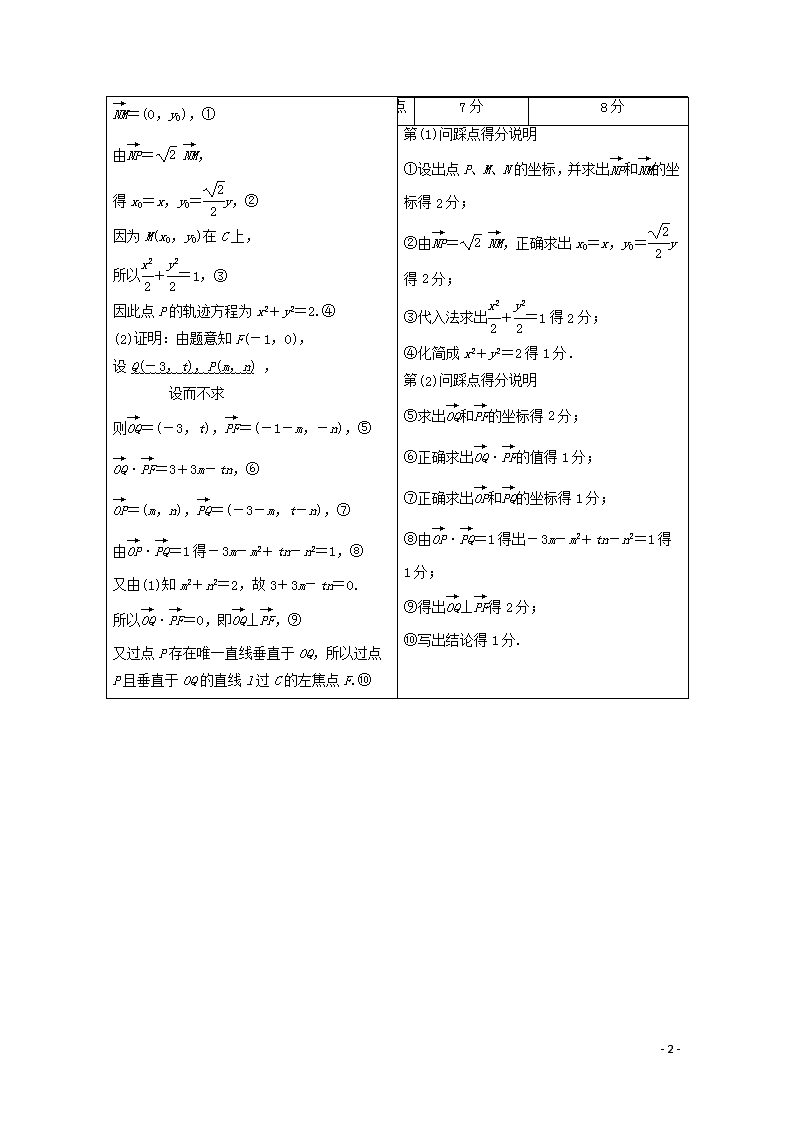 NM→=(0，y₀)，①
由NP→=√2 NM→，
得 x₀=x，y₀=√2/2 y，②
因为 M(x₀，y₀)在 C 上，
所以x²/2+y²/2=1，③
因此点 P 的轨迹方程为 x²+y²=2.④
(2)证明：由题意知 F(-1，0)，
设 Q(-3，t)，P(m，n) ，
设而不求
则OQ→=(-3，t)，PF→=(-1-m，-n)，⑤
OQ→·PF→=3+3m-tn，⑥
OP→=(m，n)，PQ→=(-3-m，t-n)，⑦
由OP→·PQ→=1 得-3m-m²+tn-n²=1，⑧
又由(1)知 m²+n²=2，故 3+3m-tn=0.
所以OQ→·PF→=0，即OQ→⊥PF→，⑨
又过点 P 存在唯一直线垂直于 OQ，所以过点
P 且垂直于 OQ 的直线 l 过 C 的左焦点 F.⑩
点 7 分 8 分
第(1)问踩点得分说明
①设出点 P、M、N 的坐标，并求出NP→和NM→的坐
标得 2 分；
②由NP→=√2 NM→，正确求出 x₀=x，y₀=√2/2 y
得 2 分；
③代入法求出x²/2+y²/2=1 得 2 分；
④化简成 x²+y²=2 得 1 分.
第(2)问踩点得分说明
⑤求出OQ→和PF→的坐标得 2 分；
⑥正确求出OQ→·PF→的值得 1 分；
⑦正确求出OP→和PQ→的坐标得 1 分；
⑧由OP→·PQ→=1 得出-3m-m²+tn-n²=1 得
1 分；
⑨得出OQ→⊥PF→得 2 分；
⑩写出结论得 1 分.
- 2 -